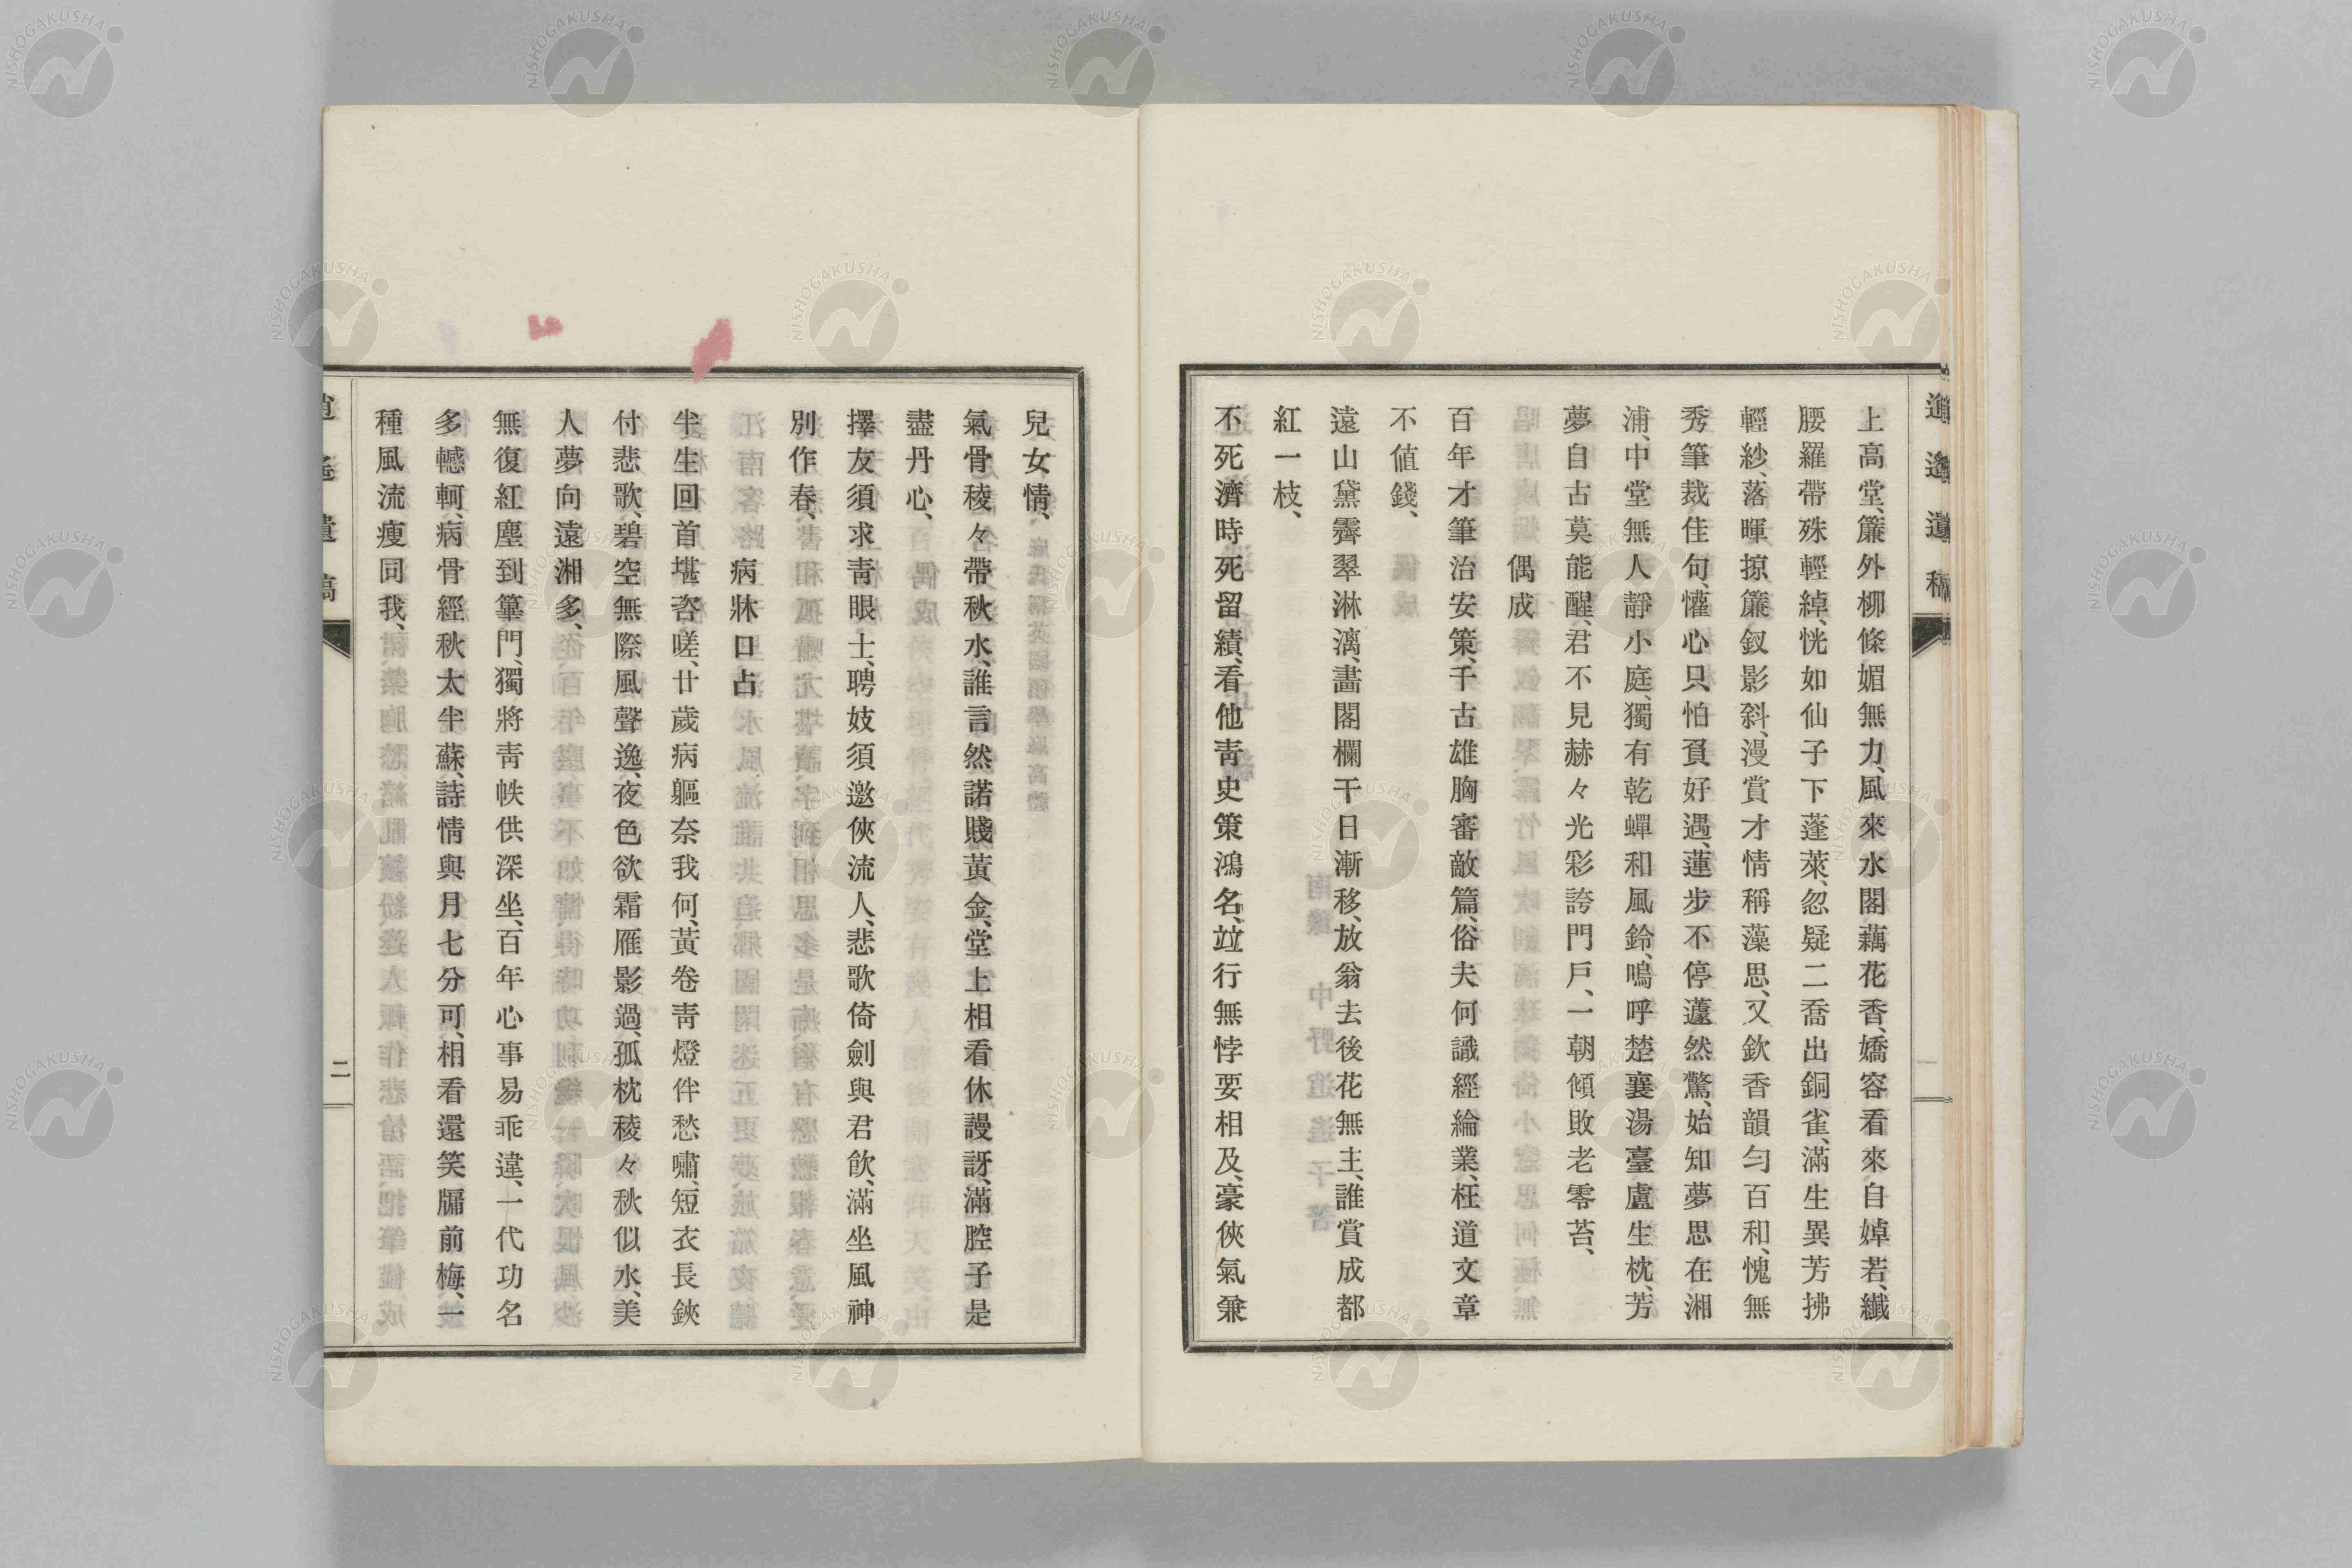 逍遙遺稿
上高堂、簾外柳條媚無力、風來水閣藕花香、嬌容看來自婥若、纖
腰羅帶殊輕綽、恍如仙子下蓬萊、忽疑二喬出銅雀、滿生異芳拂
輕紗、落暉掠簾釵影斜、漫賞才情稱藻思、又欽香韻勻百和、愧無
秀筆裁佳句、懽心只怕負好遇、蓮步不停蘧然驚、始知夢思在湘
浦、中堂無人靜小庭、獨有乾蟬和風鈴、嗚呼楚襄湯臺盧生枕、芳
夢自古莫能醒、君不見赫々光彩誇門戶、一朝傾敗老零苔、
偶成
百年才筆治安策、千古雄胸審敵篇、俗夫何識經綸業、枉道文章
不値錢、
遠山黛霽翠淋漓、畫閣欄干日漸移、放翁去後花無主、誰賞成都
紅一枝、
不死濟時死留績、看他靑史策鴻名、竝行無悖要相及、豪俠氣兼
兒女情、
氣骨稜々帶秋水、誰言然諾賤黃金、堂上相看休謾訝、滿腔子是
盡丹心、
擇友須求靑眼士、聘妓須邀俠流人、悲歌倚劍與君飮、滿坐風神
別作春、
病牀口占
半生回首堪咨嗟、廿歲病軀奈我何、黃卷靑燈伴愁嘯、短衣長鋏
付悲歌、碧空無際風聲逸、夜色欲霜雁影過、孤枕稜々秋似水、美
人夢向遠湘多、
無復紅塵到篳門、獨將靑帙供深坐、百年心事易乖違、一代功名
多轗軻、病骨經秋太半蘇、詩情與月七分可、相看還笑牖前梅、一
種風流瘦同我、
逍遙遺稿
二
NISHOGAKUSHA